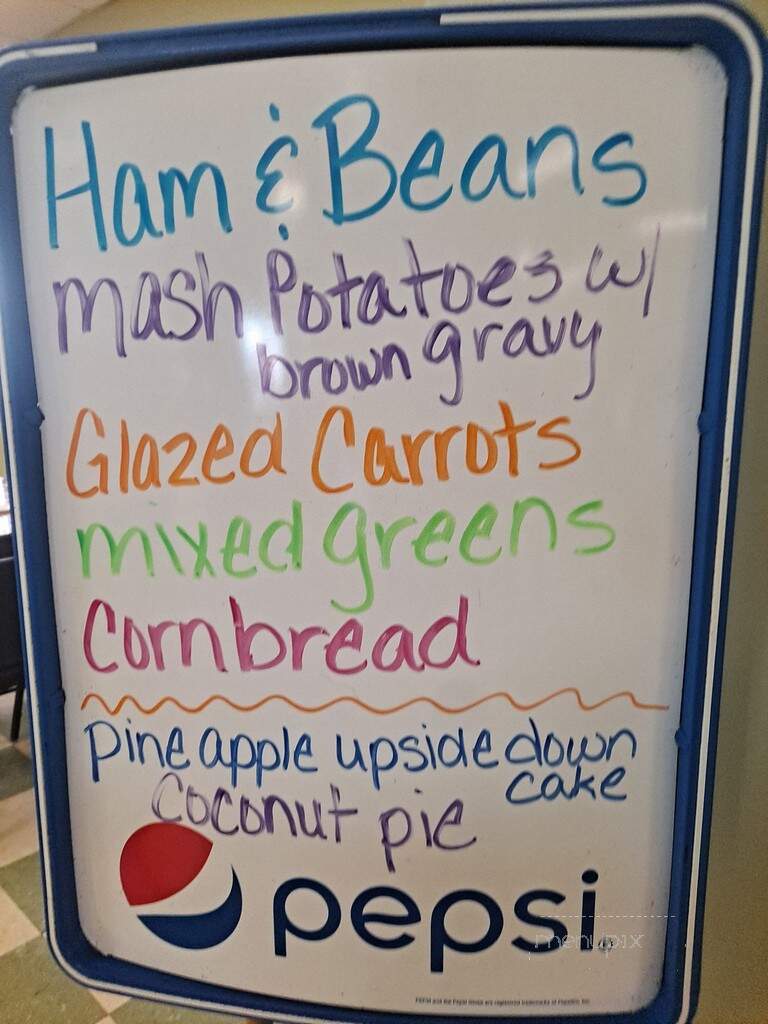 Ham & Beans
mash Potatoes w/
brown gravy
Glazed Carrots
mixed greens
Cornbread
pineapple upside down
cake
Coconut pie
pepsi
menupix